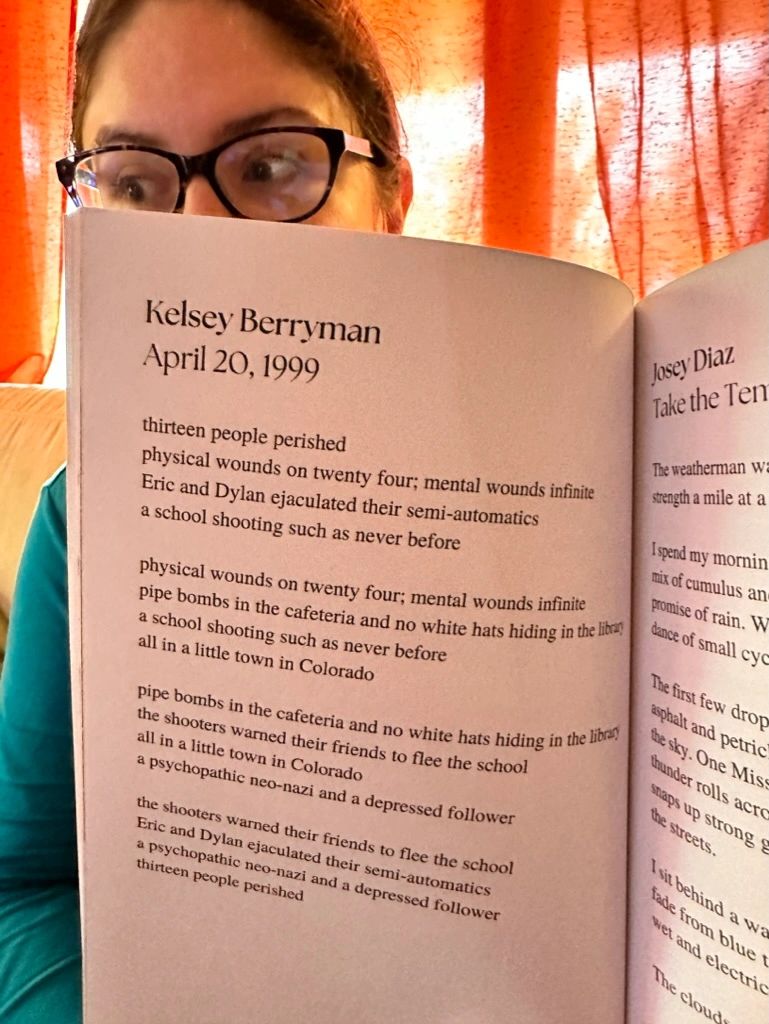 Kelsey Berryman
April 20, 1999
thirteen people perished
physical wounds on twenty four; mental wounds infinite
Eric and Dylan ejaculated their semi-automatics
a school shooting such as never before
physical wounds on twenty four; mental wounds infinite
pipe bombs in the cafeteria and no white hats hiding in the library
a school shooting such as never before
all in a little town in Colorado
pipe bombs in the cafeteria and no white hats hiding in the library
the shooters warned their friends to flee the school
all in a little town in Colorado
a psychopathic neo-nazi and a depressed follower
the shooters warned their friends to flee the school
Eric and Dylan ejaculated their semi-automatics
a psychopathic neo-nazi and a depressed follower
thirteen people perished
Josey Diaz
Take the
The weatherman
strength a mile at a
I spend my
mix of cumulus
promise of rain.
dance of small
The first few
asphalt and
the sky. One
thunder rolls
snaps up strong
the streets.
I sit behind a
fade from blue
wet and
The